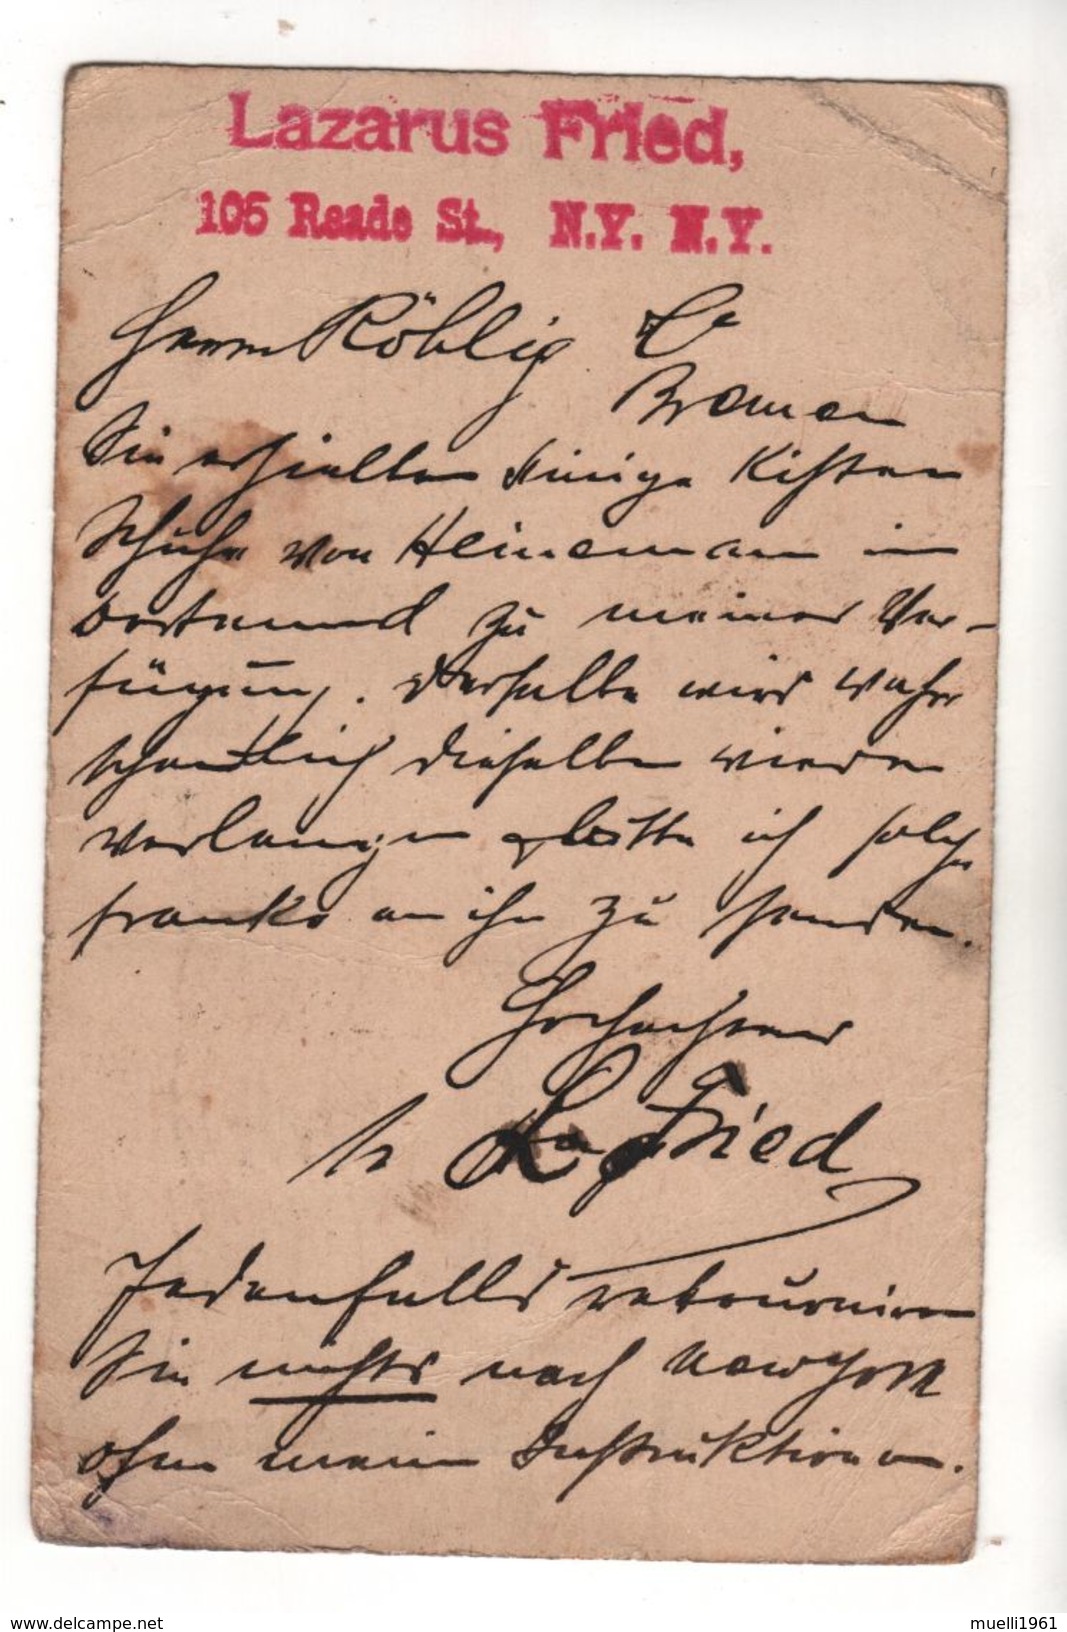 Lazarus Fried,
105 Reade St., N.Y. N.Y.
Herrn Röhlig & Co
Bremen
Sie erhielten einige Kisten
Schuhe von Heineman in
Dortmund zu meiner Ver-
fügung. Derselbe wird wahr
scheinlich dieselben wieder
verlangen bitte ich solche
franko an ihn zu senden.
Hochachtend
Fried
Jedenfalls retourniren
Sie nichts nach New York
ohne meine Instruktionen.
www.delcampe.net
muelli1961